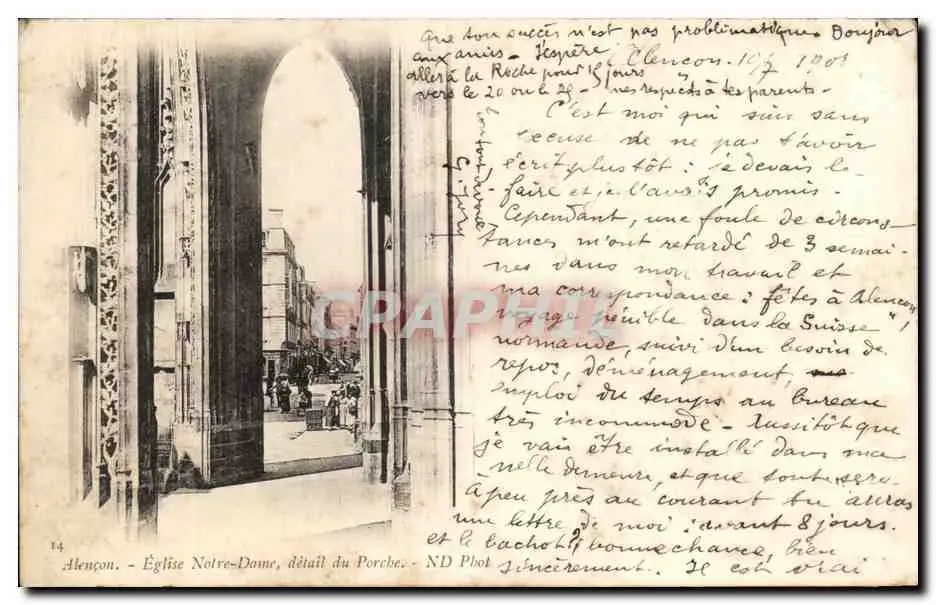 que ton succès n'est pas problématique. Bonjour
aux amis - J'espère
aller à la Roche pour 15 jours
vers le 20 ou le 25 - mes respects à tes parents -
Alençon. 1901
C'est moi qui suis sans
excuse de ne pas t'avoir
écrit plus tôt : je devais le
faire et je l'avais promis.
Cependant, une foule de circons-
tances m'ont retardé de 3 semai-
nes dans mon travail et
ma correspondance : fêtes à Alençon,
voyage pénible dans la "Suisse
normande", suivi d'un besoin de
repos, déménagement,
emploi du temps au bureau
très incommode - Aussitôt que
je vais être installé dans ma
nelle demeure, et que tout sera
à peu près au courant tu auras
une lettre de moi : avant 8 jours.
et le bachot ? bonne chance, bien
sincèrement. Il est vrai
ton tout dévoué
CRAPHIL
14
Alençon. - Église Notre-Dame, détail du Porche. - ND Phot